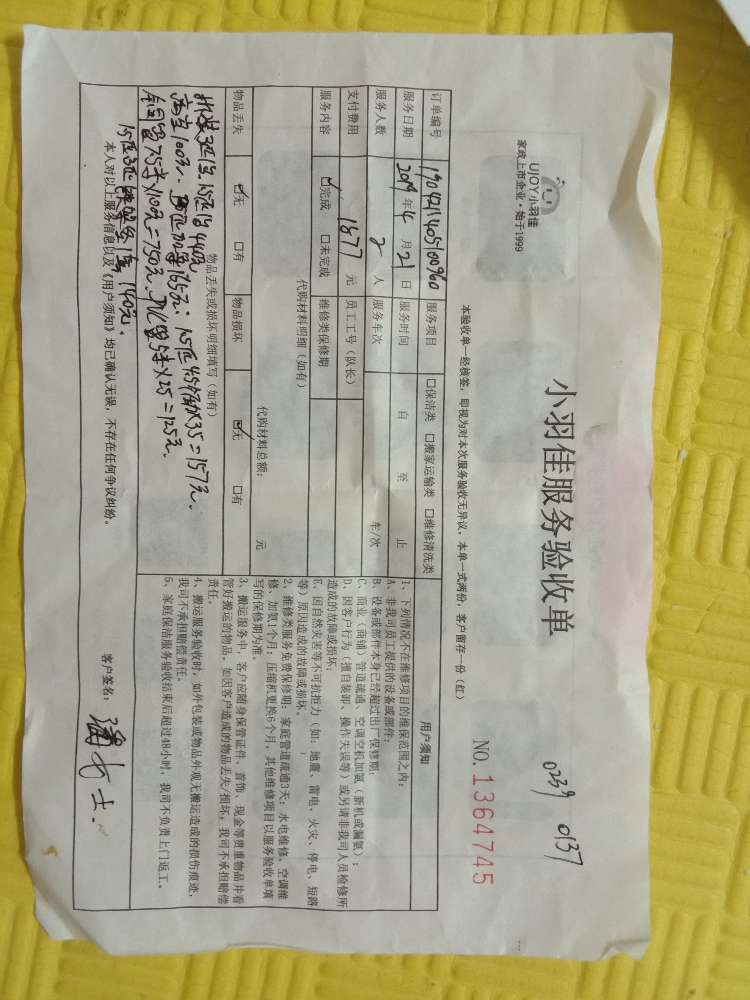 UJOY小羽佳
家政上市企业·始于1999
小羽佳服务验收单
0239 0137
NO.1364745
本验收单一经核签，即视为对本次服务验收无异议，本单一式两份，客户留存一份（红）
订单编号 190421140510096 服务项目 □保洁类 □搬家运输类 □维修清洗类
服务日期 2019年4月21日 服务时间 自 至 止
服务人数 2人 服务车次 车/次
支付费用 1577元 员工工号（队长）
服务内容 ☑完成 □未完成 维修类保修期
代购材料明细（如有）
代购材料总额： 元
物品丢失 ☑无 □有 物品损坏 ☑无 □有
物品丢失或损坏明细填写（如有）
拆装3匹1台、1.5匹1台440元
高空100元、3匹加氟165元、1.5匹45分加×35=157元、
铜管7.5米×100元=750元、PVC管5米×25=125元、
140元、
本人对以上服务信息以及《用户须知》均已确认无误，不存在任何争议纠纷。
用户须知
1、下列情况不在维修项目的维保范围之内：
A、非我司员工提供的设备或部件；
B、设备或部件本身已经超过出厂保修期；
C、商业（商铺）管道疏通、空调空机加氨（新机或漏氨）；
D、因客户行为（擅自装卸、操作失误等）或另请非我司人员检修所
造成的故障或损坏；
E、因自然灾害等不可抗拒力（如：地震、雷电、火灾、停电、短路
等）原因造成的故障或损坏。
2、维修类服务免费保修期：家庭管道疏通3天；水电维修、空调维
修、加氨1个月；压缩机更换6个月，其他维修项目以服务验收单填
写的保修期为准。
3、搬运服务中，客户应随身保管证件、首饰、现金等贵重物品并看
管好搬运的物品，如因客户造成的物品丢失/损坏，我司不承担赔偿
责任。
4、搬运服务验收时，如外包装或物品外观无搬运造成的损伤痕迹，
我司不承担赔偿责任。
5、家庭保洁服务验收结束后超过48小时，我司不负责上门返工。
客户签名： 潘女士